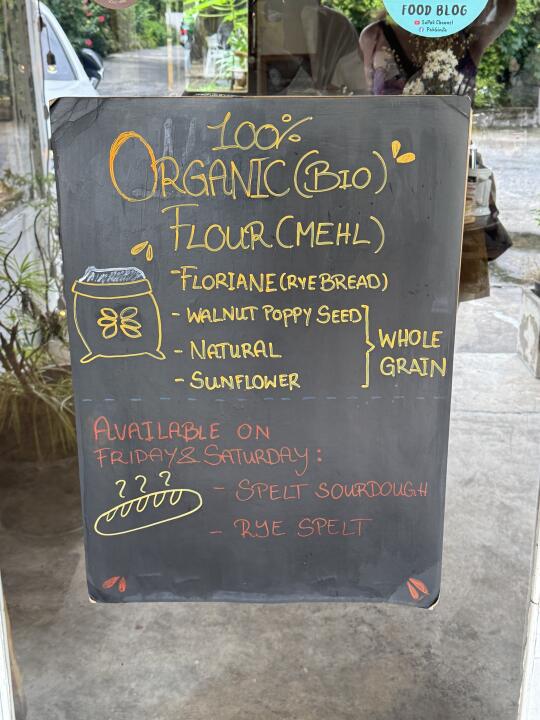 FOOD BLOG
100%
ORGANIC (BIO)
FLOUR (MEHL)
- FLORIANE (RYE BREAD)
- WALNUT POPPY SEED
- NATURAL
- SUNFLOWER
WHOLE
GRAIN
AVAILABLE ON
FRIDAY & SATURDAY:
- SPELT SOURDOUGH
- RYE SPELT